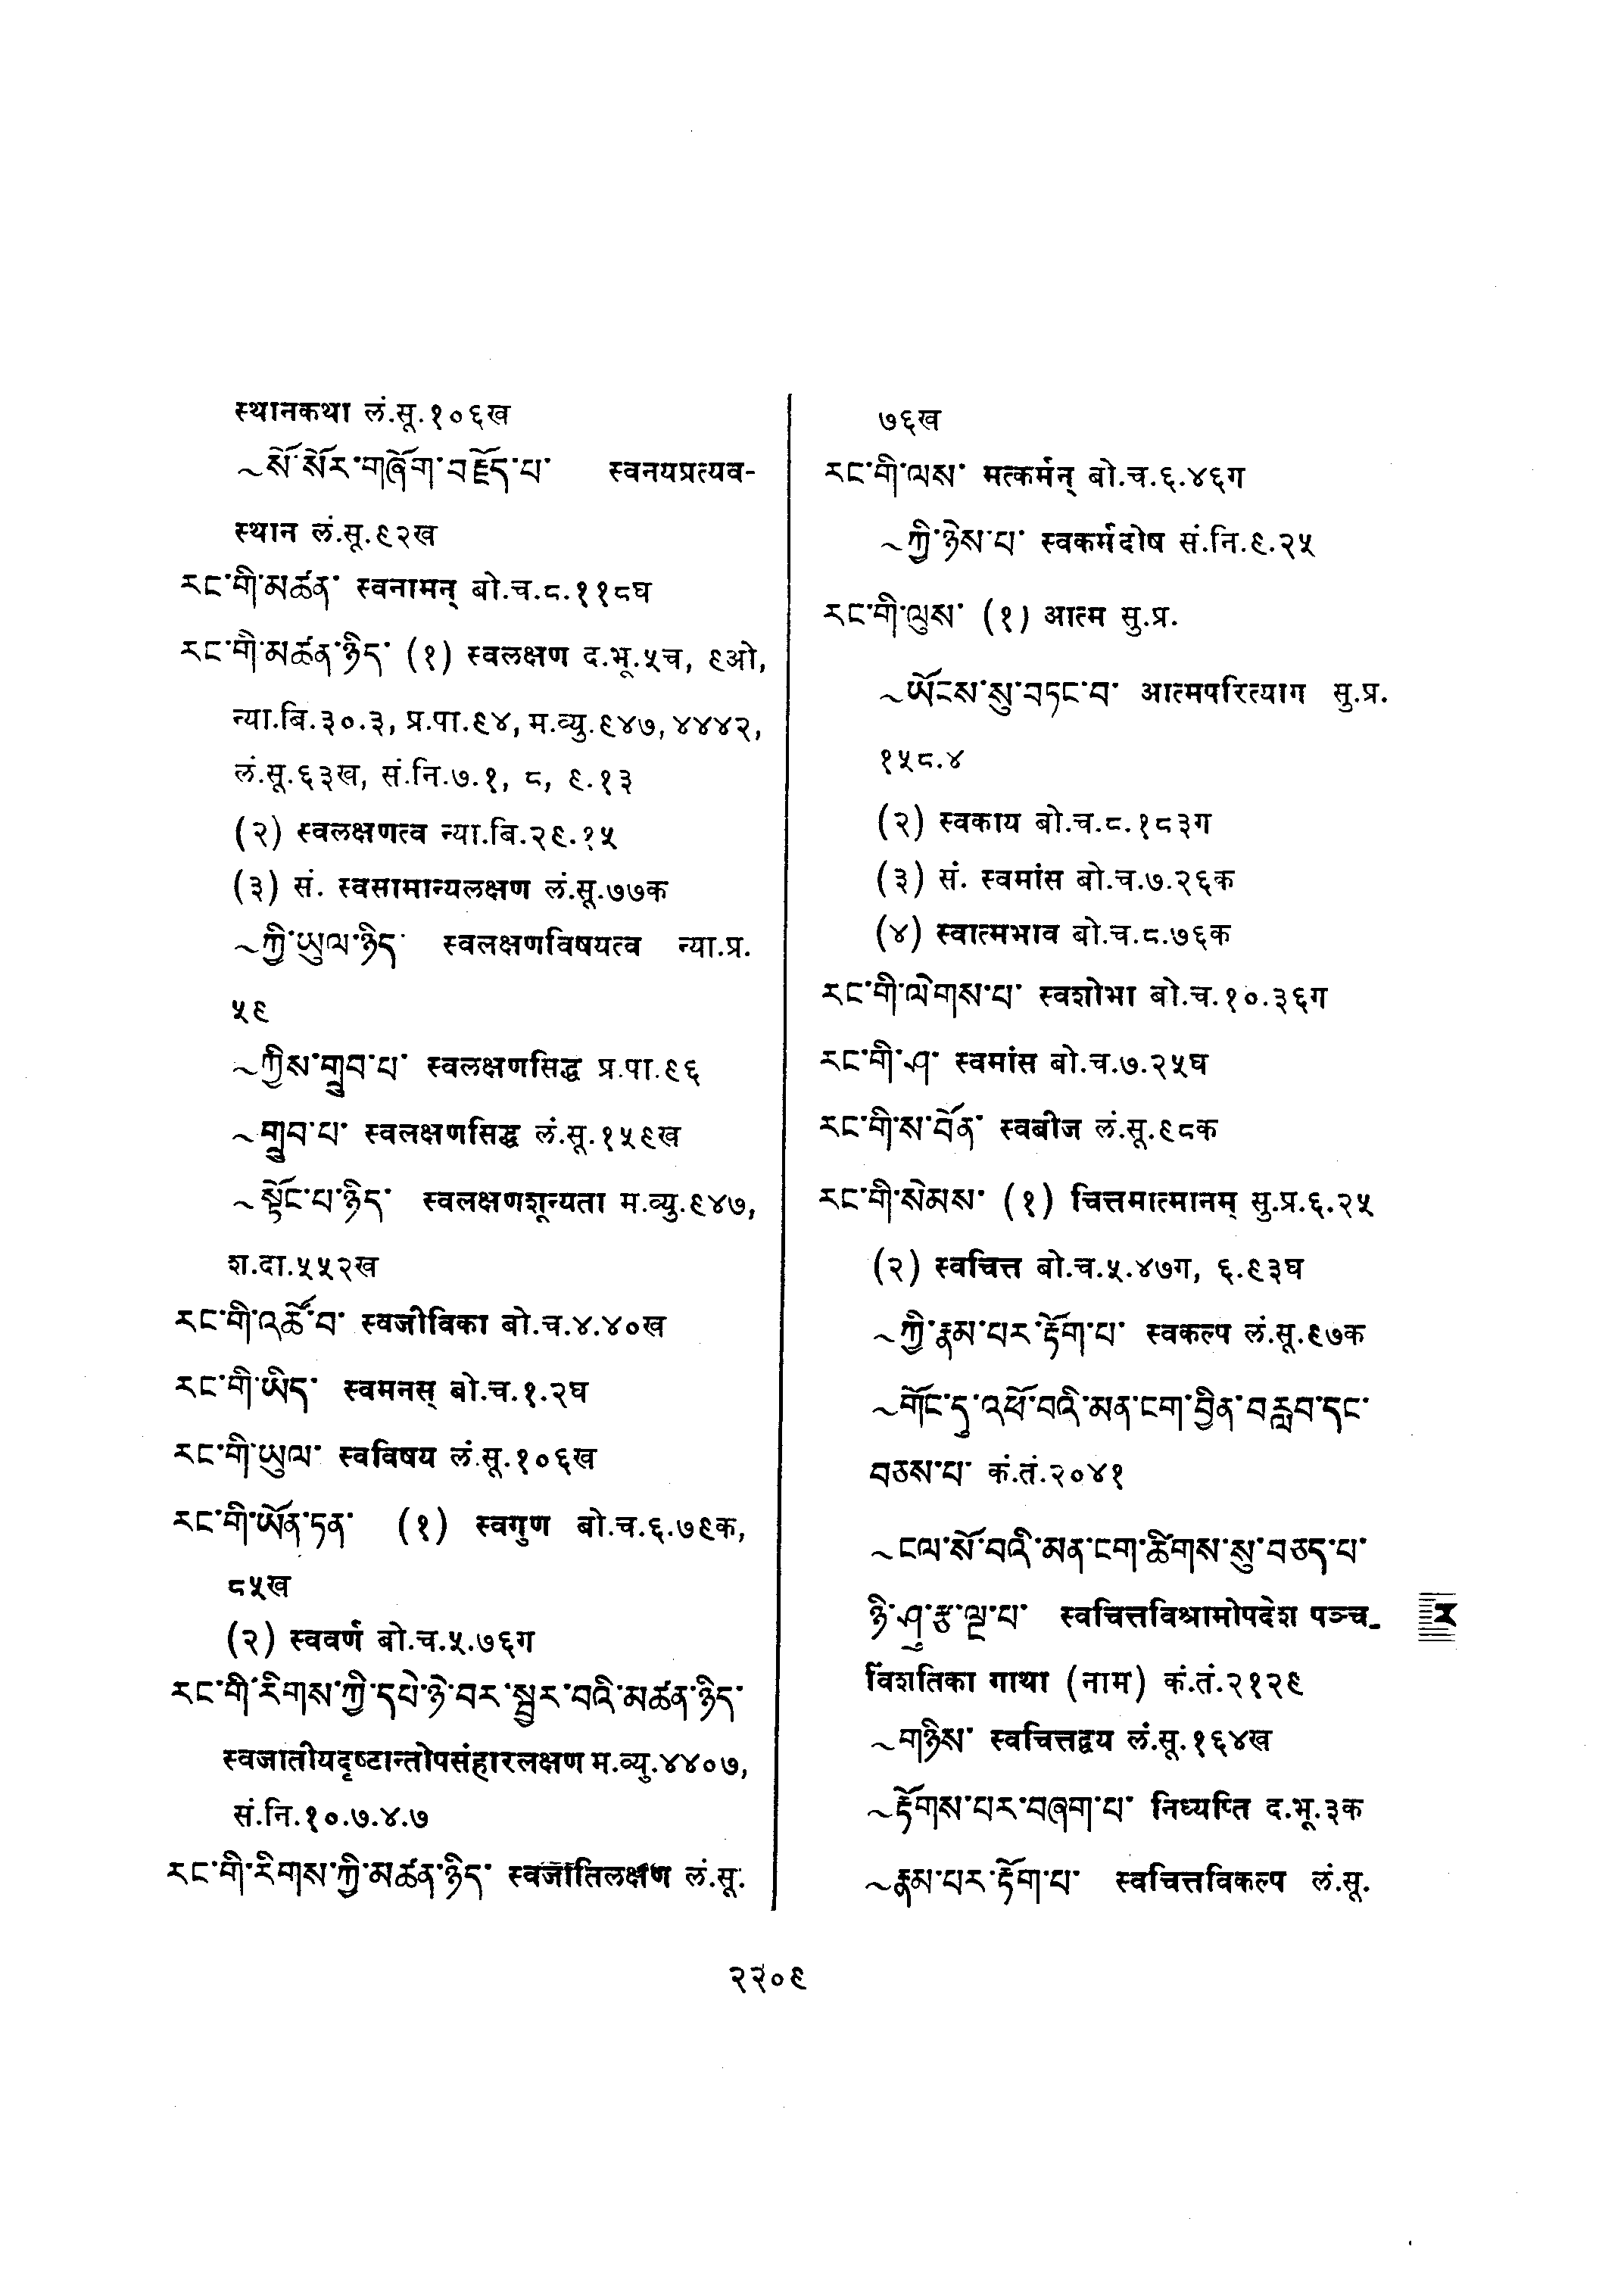 स्थानकथा लं.सू.१०६ख
~སོ་སོར་གཞོག་བརྗོད་པ་ स्वनयप्रत्यव-
स्थान लं.सू.९२ख
རང་གི་མཚན་ स्वनामन् बो.च.८.११८घ
རང་གི་མཚན་ཉིད་ (१) स्वलक्षण द.भू.५च, ९ओ,
न्या.बि.३०.३, प्र.पा.९४, म.व्यु.९४७, ४४४२,
लं.सू.६३ख, सं.नि.७.१, ८, ९.१३
(२) स्वलक्षणत्व न्या.बि.२९.१५
(३) सं. स्वसामान्यलक्षण लं.सू.७७क
~ཀྱི་ཡུལ་ཉིད་ स्वलक्षणविषयत्व न्या.प्र.
५९
~ཀྱིས་གྲུབ་པ་ स्वलक्षणसिद्ध प्र.पा.९६
~གྲུབ་པ་ स्वलक्षणसिद्ध लं.सू.१५९ख
~སྟོང་པ་ཉིད་ स्वलक्षणशून्यता म.व्यु.९४७,
श.दा.५५२ख
རང་གི་འཚོ་བ་ स्वजीविका बो.च.४.४०ख
རང་གི་ཡིད་ स्वमनस् बो.च.१.२घ
རང་གི་ཡུལ་ स्वविषय लं.सू.१०६ख
རང་གི་ཡོན་ཏན་ (१) स्वगुण बो.च.६.७९क,
८५ख
(२) स्ववर्ण बो.च.५.७६ग
རང་གི་རིགས་ཀྱི་དཔེ་ཉེ་བར་སྦྱར་བའི་མཚན་ཉིད་
स्वजातीयदृष्टान्तोपसंहारलक्षण म.व्यु.४४०७,
सं.नि.१०.७.४.७
རང་གི་རིགས་ཀྱི་མཚན་ཉིད་ स्वजातिलक्षण लं.सू.
७६ख
རང་གི་ལས་ मत्कर्मन् बो.च.६.४६ग
~ཀྱི་ཉེས་པ་ स्वकर्मदोष सं.नि.९.२५
རང་གི་ལུས་ (१) आत्म सु.प्र.
~ཡོངས་སུ་བཏང་བ་ आत्मपरित्याग सु.प्र.
१५८.४
(२) स्वकाय बो.च.८.१८३ग
(३) सं. स्वमांस बो.च.७.२६क
(४) स्वात्मभाव बो.च.८.७६क
རང་གི་ལེགས་པ་ स्वशोभा बो.च.१०.३६ग
རང་གི་ཤ་ स्वमांस बो.च.७.२५घ
རང་གི་ས་བོན་ स्वबीज लं.सू.९८क
རང་གི་སེམས་ (१) चित्तमात्मानम् सु.प्र.६.२५
(२) स्वचित्त बो.च.५.४७ग, ६.९३घ
~ཀྱི་རྣམ་པར་རྟོག་པ་ स्वकल्प लं.सू.९७क
~གོང་དུ་འཕོ་བའི་མན་ངག་བྱིན་བརླབ་དང་
བཅས་པ་ कं.तं.२०४१
~ངལ་སོ་བའི་མན་ངག་ཚིགས་སུ་བཅད་པ་
ཉི་ཤུ་རྩ་ལྔ་པ་ स्वचित्तविश्रामोपदेश पञ्च-
र
विंशतिका गाथा (नाम) कं.तं.२१२९
~གཉིས་ स्वचित्तद्वय लं.सू.१६४ख
~རྟོགས་པར་བཞག་པ་ निध्यप्ति द.भू.३क
~རྣམ་པར་རྟོག་པ་ स्वचित्तविकल्प लं.सू.
२२०९